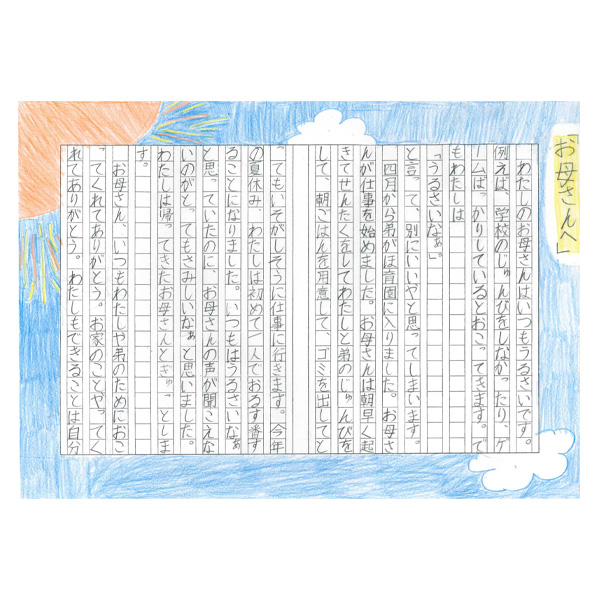 「お母さんへ」
わたしのお母さんはいつもうるさいです。
例えば、学校のじゅんびをしなかったり、ゲ
ームばっかりしているとおこってきます。で
もわたしは
「うるさいなぁ」。
と言って、別にいいやと思ってしまいます。
四月から弟がほ育園に入りました。お母さ
んが仕事を始めました。お母さんは朝早く起
きてせんたくをしてわたしと弟のじゅんびを
して、朝ごはんを用意して、ゴミを出してと
ってもいそがしそうに仕事に行きます。今年
の夏休み、わたしは初めて一人でおるす番す
ることになりました。いつもはうるさいなぁ
と思っていたのに、お母さんの声が聞こえな
いのがとってもさみしいなぁと思いました。
わたしは帰ってきたお母さんとぎゅーとしま
す。
お母さん、いつもわたしや弟のためにおこ
ってくれてありがとう。お家のことやってく
れてありがとう。わたしもできることは自分